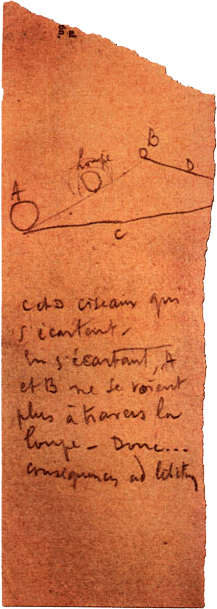 A
Loupe
B
D
C
C et D ciseaux qui
s'écartent.
En s'écartant, A
et B ne se voient
plus à travers la
loupe – Donc...
conséquences ad libitum